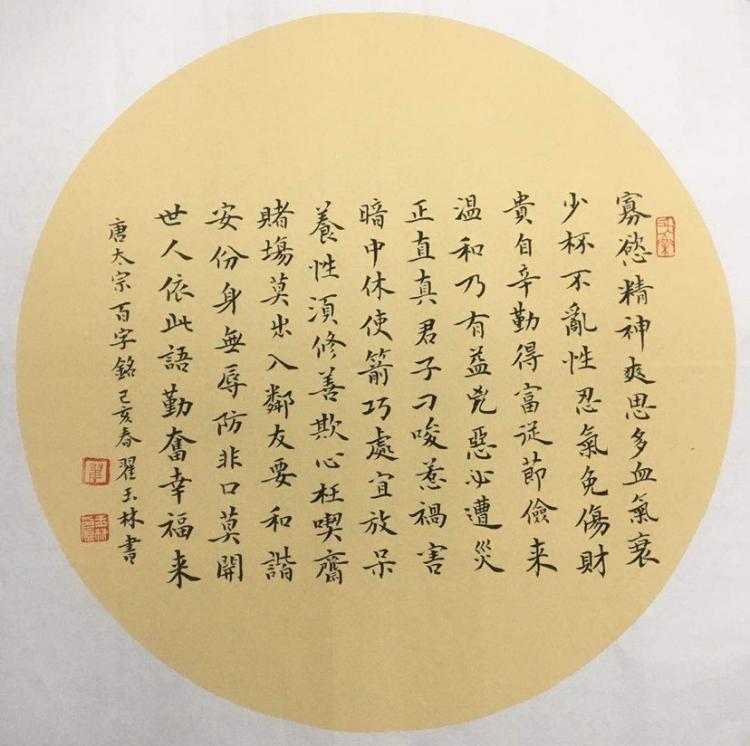 寡慾精神爽思多血氣衰
少杯不亂性忍氣免傷財
貴自辛勤得富従節儉来
温和乃有益兇惡必遭災
正直真君子刁唆惹禍害
暗中休使箭巧處宜放呆
養性須修善欺心枉喫齋
賭場莫出入鄰友要和諧
安份身無辱防非口莫開
世人依此語勤奮幸福来
唐太宗百字銘己亥春翟玉林書